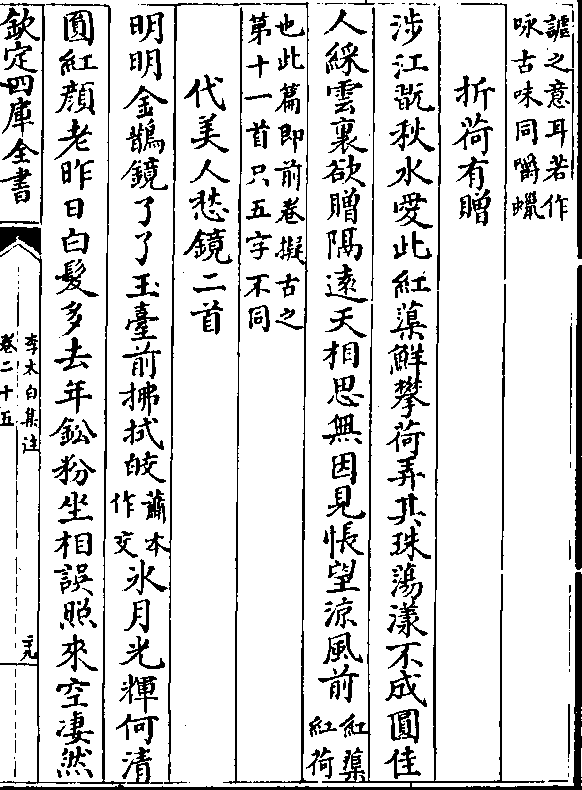 謔之意耳若作
咏古味同嚼蠟
折荷有贈
涉江翫秋水愛此紅蕖鮮攀荷弄其珠蕩漾不成圓佳
人綵雲裏欲贈隔遠天相思無因見悵望涼風前紅蕖紅荷
也此篇即前卷擬古之
第十一首只五字不同
代美人愁鏡二首
明明金鵲鏡了了玉臺前拂拭皎蕭本作交氷月光輝何清
圓紅顏老昨日白髮多去年鉛粉坐相誤照來空凄然
欽定四庫全書
李太白集注
卷二十五